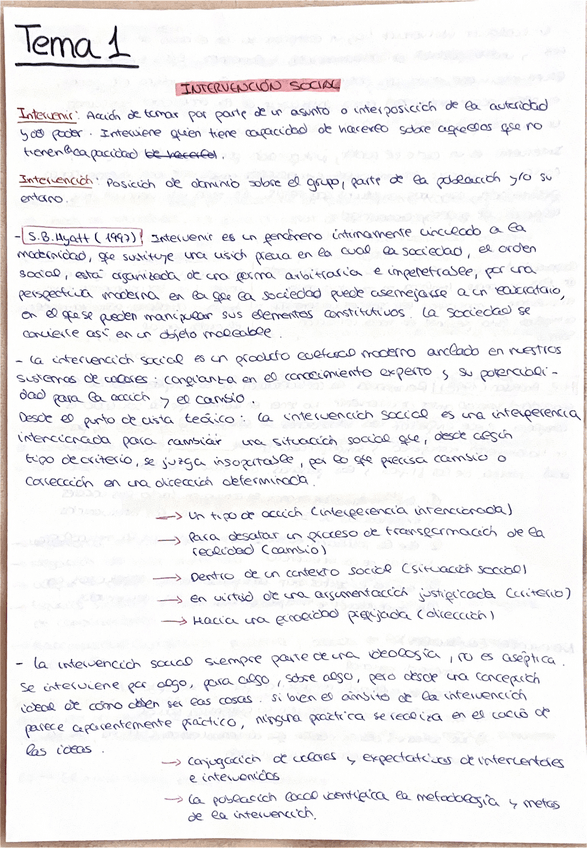 Tema 1
INTERVENCIÓN SOCIAL
Intervenir: Acción de tomar por parte de un asunto o interposición de la autoridad
y/o poder. Interviene quien tiene capacidad de hacerlo sobre aquellos que no
tienen la capacidad de hacerlo.
Intervención: Posición de dominio sobre el grupo, parte de la población y/o su
entorno.
- S.B.Hyatt (1997): Intervenir es un fenómeno íntimamente vinculado a la
modernidad, que sustituye una visión previa en la cual la sociedad, el orden
social, está organizada de una forma arbitraria e impenetrable, por una
perspectiva moderna en la que la sociedad puede asemejarse a un laboratorio,
en el que se pueden manipular sus elementos constitutivos. La sociedad se
convierte así en un objeto moldeable.
- La intervención social es un producto cultural moderno anclado en nuestros
sistemas de valores: confianza en el conocimiento experto y su potenciali-
dad para la acción y el cambio.
Desde el punto de vista teórico: La intervención social es una interferencia
intencionada para cambiar una situación social que, desde algún
tipo de criterio, se juzga insoportable, por lo que precisa cambio o
corrección en una dirección determinada.
→ Un tipo de acción (interferencia intencionada)
→ Para desatar un proceso de transformación de la
realidad (cambio)
→ Dentro de un contexto social (situación social)
→ En virtud de una argumentación justificada (criterio)
→ Hacia una finalidad prefijada (dirección)
- La intervención social siempre parte de una ideología, no es aséptica.
Se interviene por algo, para algo, sobre algo, pero desde una concepción
ideal de cómo deben ser las cosas. Si bien el ámbito de la intervención
parece aparentemente práctico, ninguna práctica se realiza en el vacío de
las ideas.
→ Conjugación de valores y expectativas de interventores
e intervenidos
→ La población local identifica la metodología y metas
de la intervención.